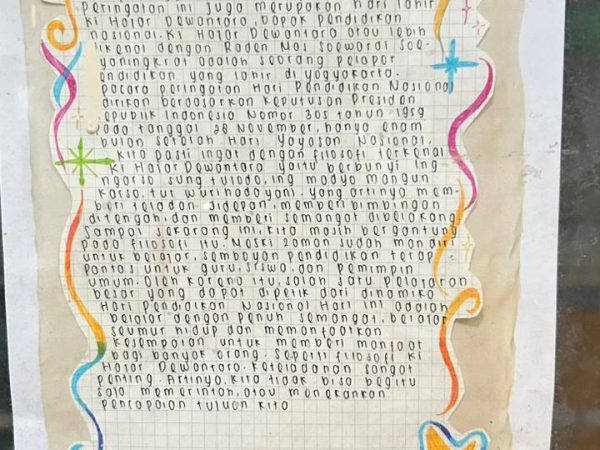 peringatan ini juga merupakan hari lahir
Ki Hajar Dewantara, bapak pendidikan
nasional. Ki Hajar Dewantara atau lebih
dikenal dengan Raden Mas Soewardi Soe-
yaningkrat adalah seorang pelapor
pendidikan yang lahir di Yogyakarta.
Secara peringatan Hari Pendidikan Nasional
didirikan berdasarkan Keputusan Presiden
Republik Indonesia Nomor 305 tahun 1959
pada tanggal 28 November, hanya enam
bulan setelah Hari Yayasan Nasional,
kita pasti ingat dengan filosofi terkenal
Ki Hajar Dewantara yaitu berbunyi Ing
ngarso sung tulodo, ing madyo mangun
karso, tut wuri hadayani, yang artinya mem-
beri teladan didepan, memberi bimbingan
ditengah, dan memberi semangat dibelakang
Sampai sekarang ini, kita masih bergantung
pada filosofi itu. Meski zaman sudah mandiri
untuk belajar, semboyan pendidikan tetap
pantas untuk guru, siswa, dan pemimpin
umum. Oleh karena itu, salah satu pelajaran
besar yang dapat dipetik dari dinamika
Hari Pendidikan Nasional Hari ini adalah
belajar dengan penuh semangat, belajar
seumur hidup dan memanfaatkan
kesempatan untuk memberi manfaat
bagi banyak orang. Seperti filosofi Ki
Hajar Dewantara. Keteladanan sangat
penting. Artinya, kita tidak bisa begitu
saja memerintah, atau menekankan
pencapaian tujuan kita